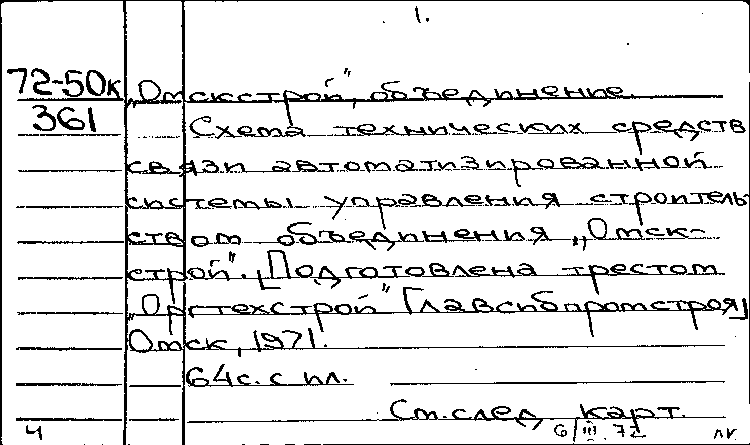 1.
72-50к
361
„Омскстрой", объединение.
Схема технических средств
связи автоматизированной
системы управления строитель
ством объединения „Омск-
строй". [Подготовлена трестом
„Оргтехстрой" Главсибпромстроя]
Омск, 1971.
64с. с ил.
См. след. карт.
ч 6/III.72